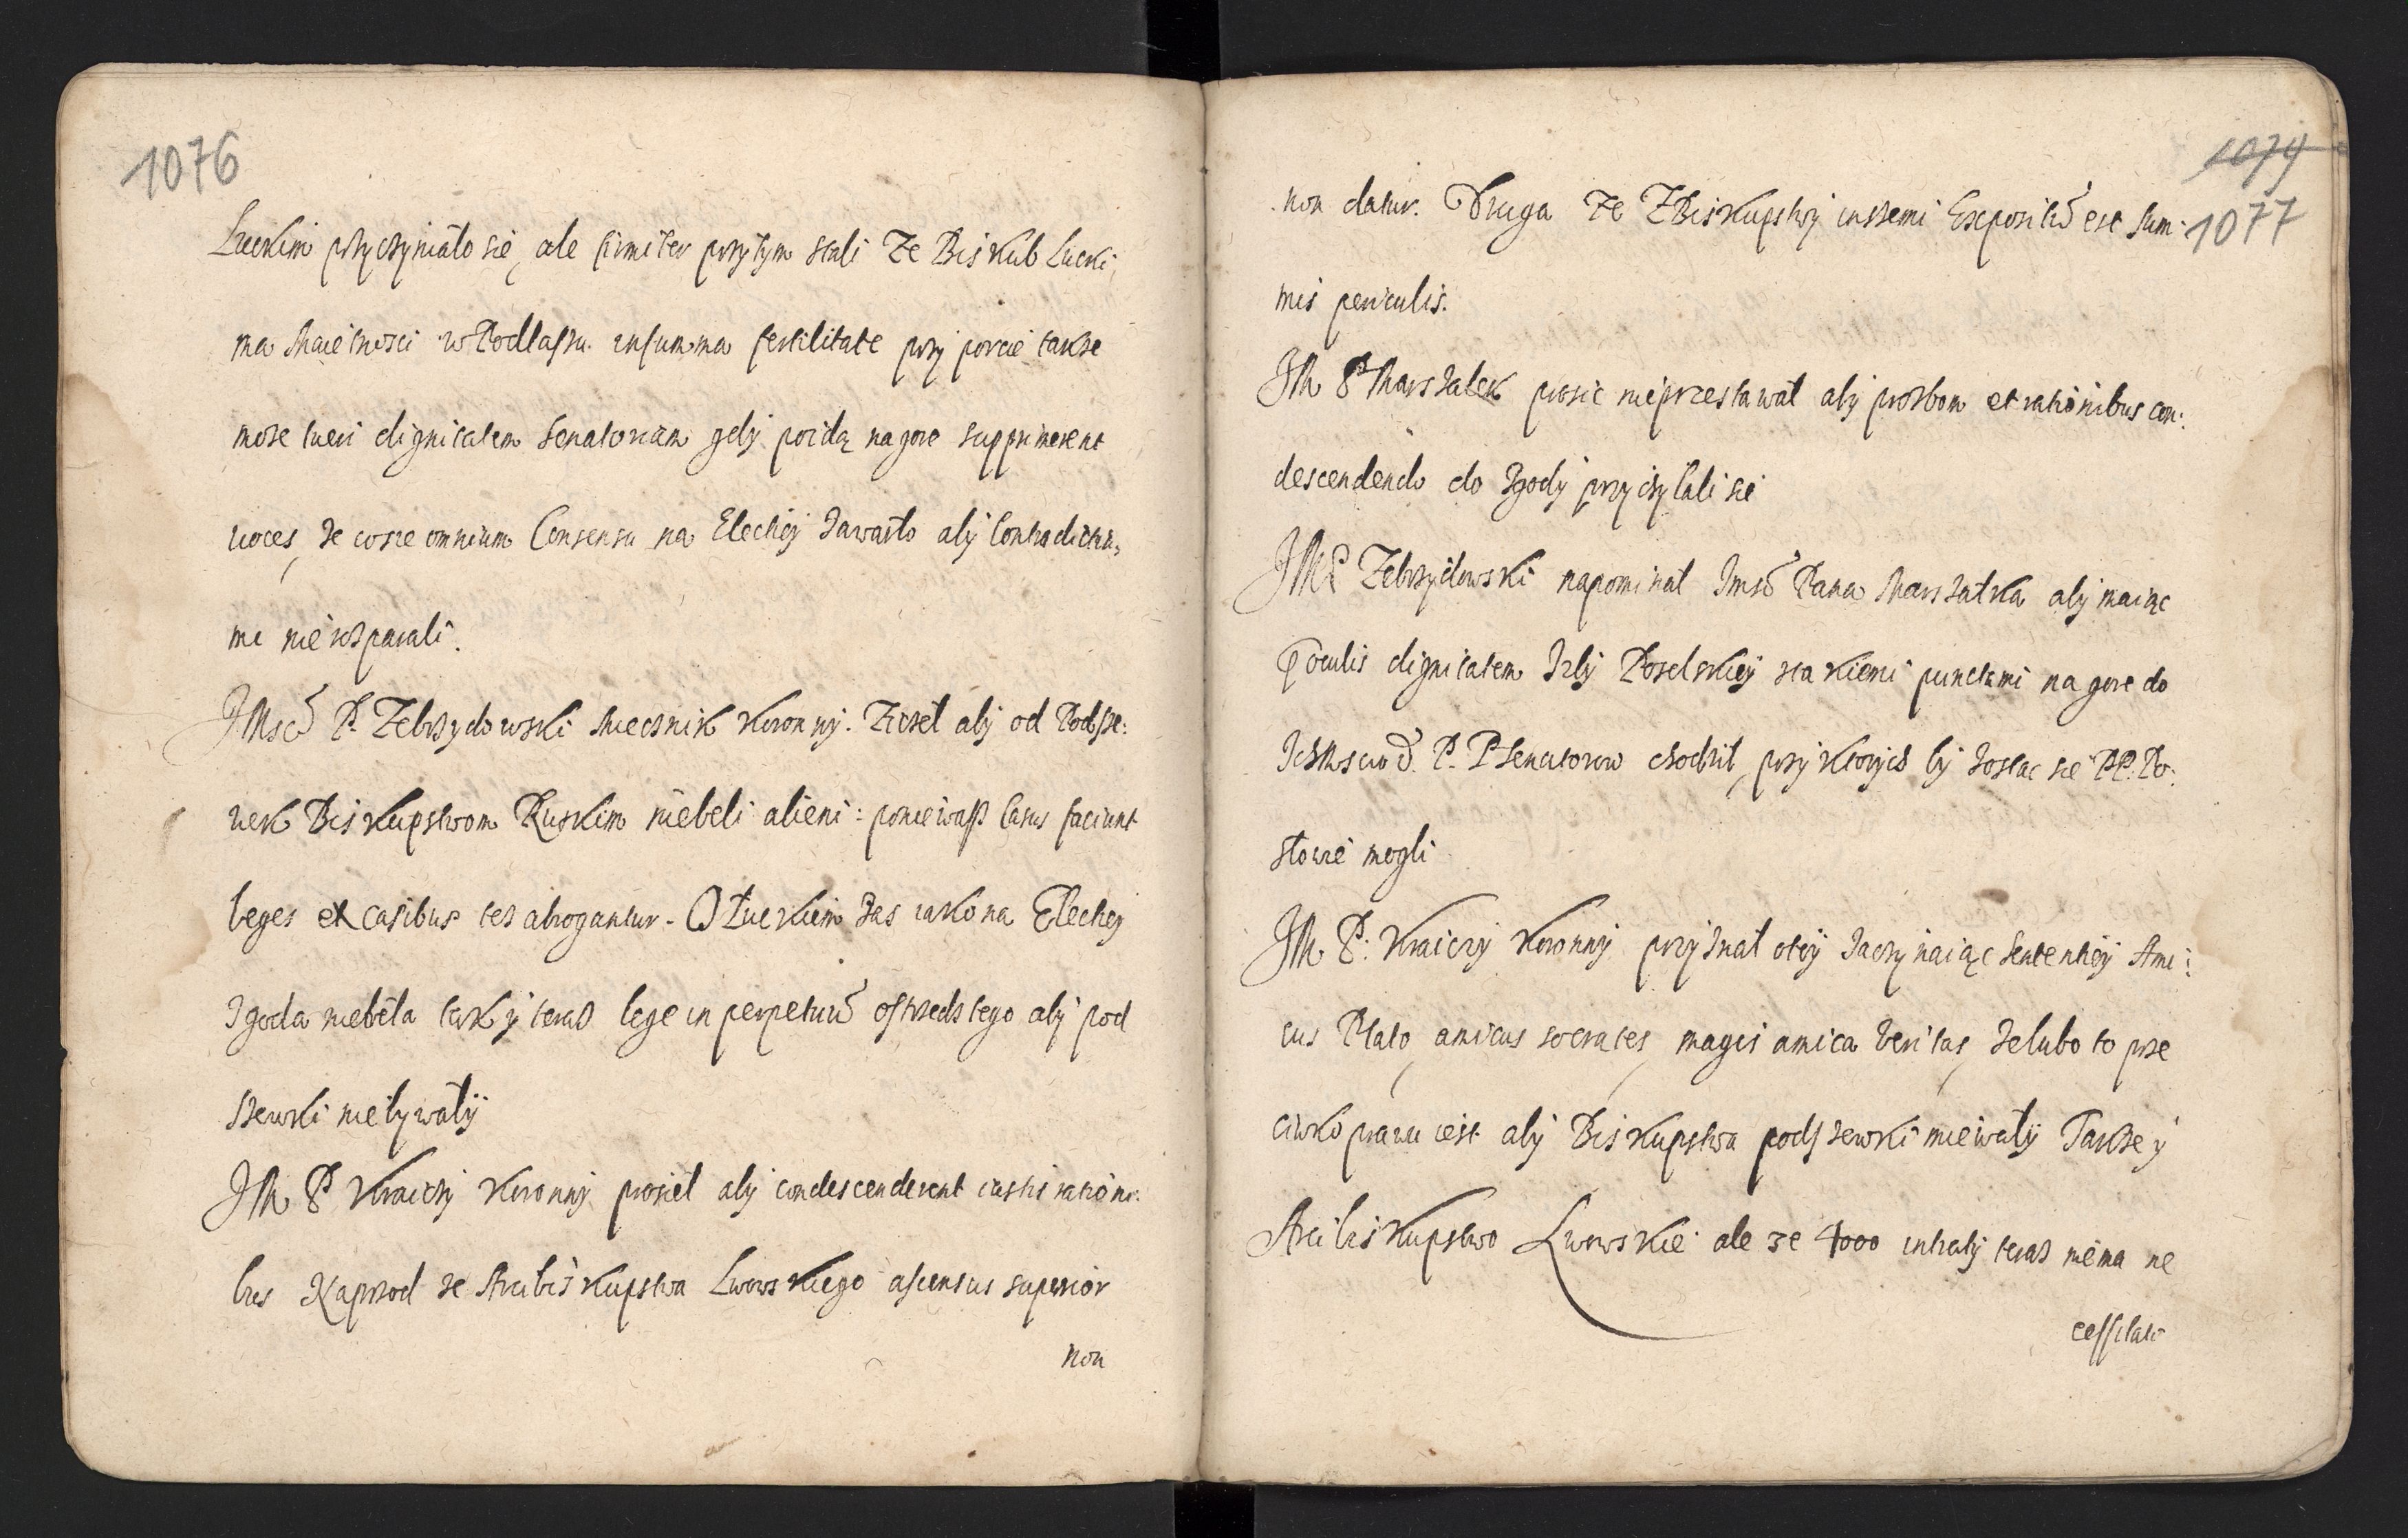 1076
Łuckim przyczyniało się, ale firmiter przytym stali Ze Biskub Lucki,
ma Maiętnosci w Podlaszu in summa fertilitate przy porcie takze
moze tueri dignitatem Senatoriam gdy poidą na gore supprimerent
uoces, ze co sie omnium Consensu na Elechiy zawarło aby Contradictia,
mi nie
JMsć P. Zebrzydowski Miecznik Koronny. Zyczeł aby od Podsze:
wek Biskupstwom Ruskim niebeli alieni: poniewasz casus faciunt
leges et casibus tez abrogantur. O Łuckiem zas iako na Elechiey
Zgoda niebeła tak y teraz lege in perpetuũ ostrzedz tego aby pod
szewki niebywały
JM P Kraiczy Koronny prosieł aby condescenderent iustis rationi:
bus Naprzod ze Arcibiskupstwa Lwowskiego ascensus superior
non
1074
1077
non datur. Druga Ze Z Biskupstwy inszemi Expositũ est sum:
mis periculis.
JM P Marszałek prosic nieprzestawał aby prozbom et rationibus con:
descendendo do Zgody przychylali sie
JM P Zebrzydowski napominał Jmsć Pana Marszałka aby maiąc
p oculis dignitatem Izby Poselskiey z takiemi punctami na gore do
Ichmsciow P. P Senatorow chodził, przy ktorych by zostac sie PP. Po:
słowie mogli
JM P: Kraiczy Koronny przyznał otey zaczynaiąc Sententiey Ami:
cus Plato, amicus socrates, magis amica veritas, ze lubo to prze
ciwko prawu iest aby Biskupstwa podszewki miewały Takze y
Arcibiskupstwo Lwowskie ale ze 4000 intraty teraz niema ne
cessitate